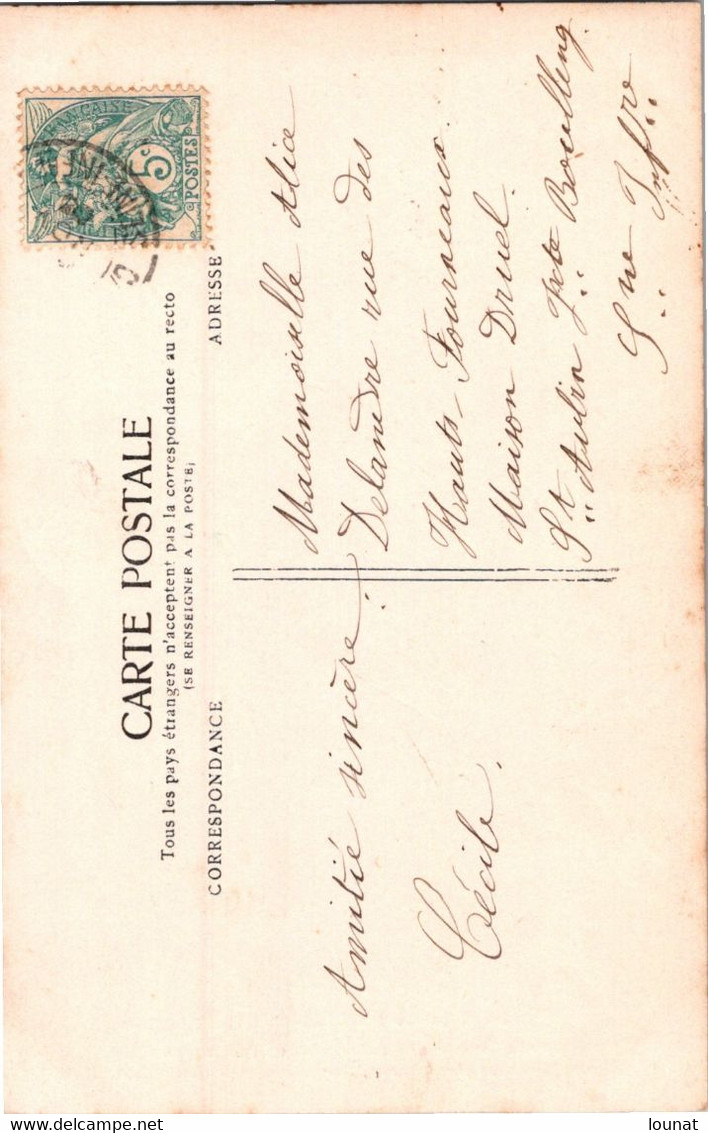 CARTE POSTALE
Tous les pays étrangers n'acceptent pas la correspondance au recto
(SE RENSEIGNER A LA POSTE)
CORRESPONDANCE
ADRESSE
FRANÇAISE
5c
POSTES
Amitié sincère.
Cécile.
Mademoiselle Alice
Delandre rue des
Hauts-Fourneaux.
Maison Druel.
St Aubin Jcte Boulleng
Sne Infre
lounat